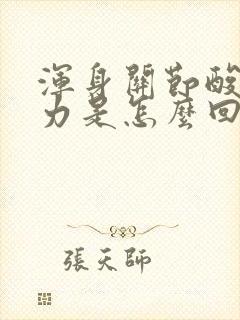 渾身關節酸
力是怎麼回
張天師